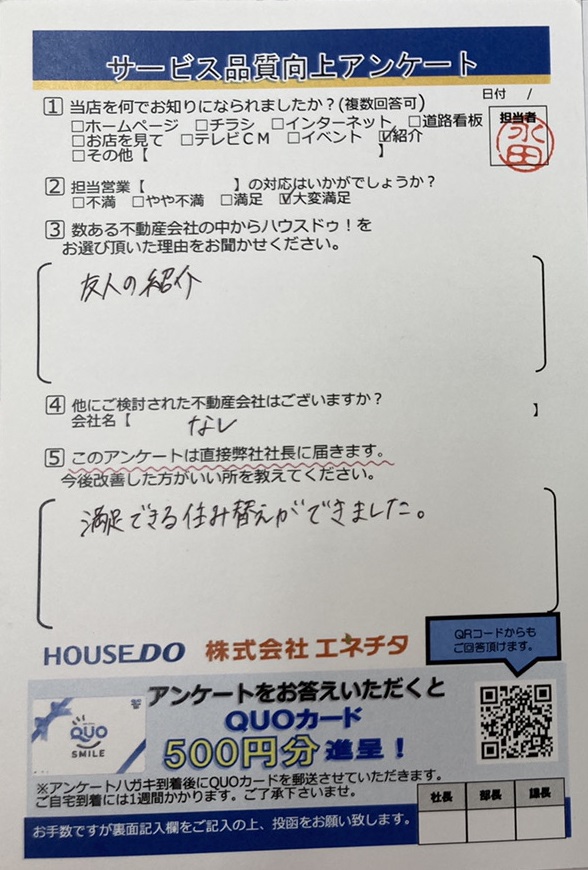 サービス品質向上アンケート
日付　/
1 当店を何でお知りになられましたか？(複数回答可)
□ホームページ　□チラシ　□インターネット　□道路看板
□お店を見て　□テレビＣＭ　□イベント　☑紹介
□その他【　　　】
担当者
永田
2 担当営業【　　　】の対応はいかがでしょうか？
□不満　□やや不満　□満足　☑大変満足
3 数ある不動産会社の中からハウスドゥ！を
お選び頂いた理由をお聞かせください。
友人の紹介
4 他にご検討された不動産会社はございますか？
会社名【　なし　】
5 このアンケートは直接弊社社長に届きます。
今後改善した方がいい所を教えてください。
満足できる住み替えができました。
HOUSEDO 株式会社 エネチタ
QRコードからも
ご回答頂けます。
アンケートをお答えいただくと
QUOカード
500円分 進呈！
QUO
SMILE
※アンケートハガキ到着後にQUOカードを郵送させていただきます。
ご自宅到着には1週間かかります。ご了承下さいませ。
社長　部長　課長
お手数ですが裏面記入欄をご記入の上、投函をお願い致します。